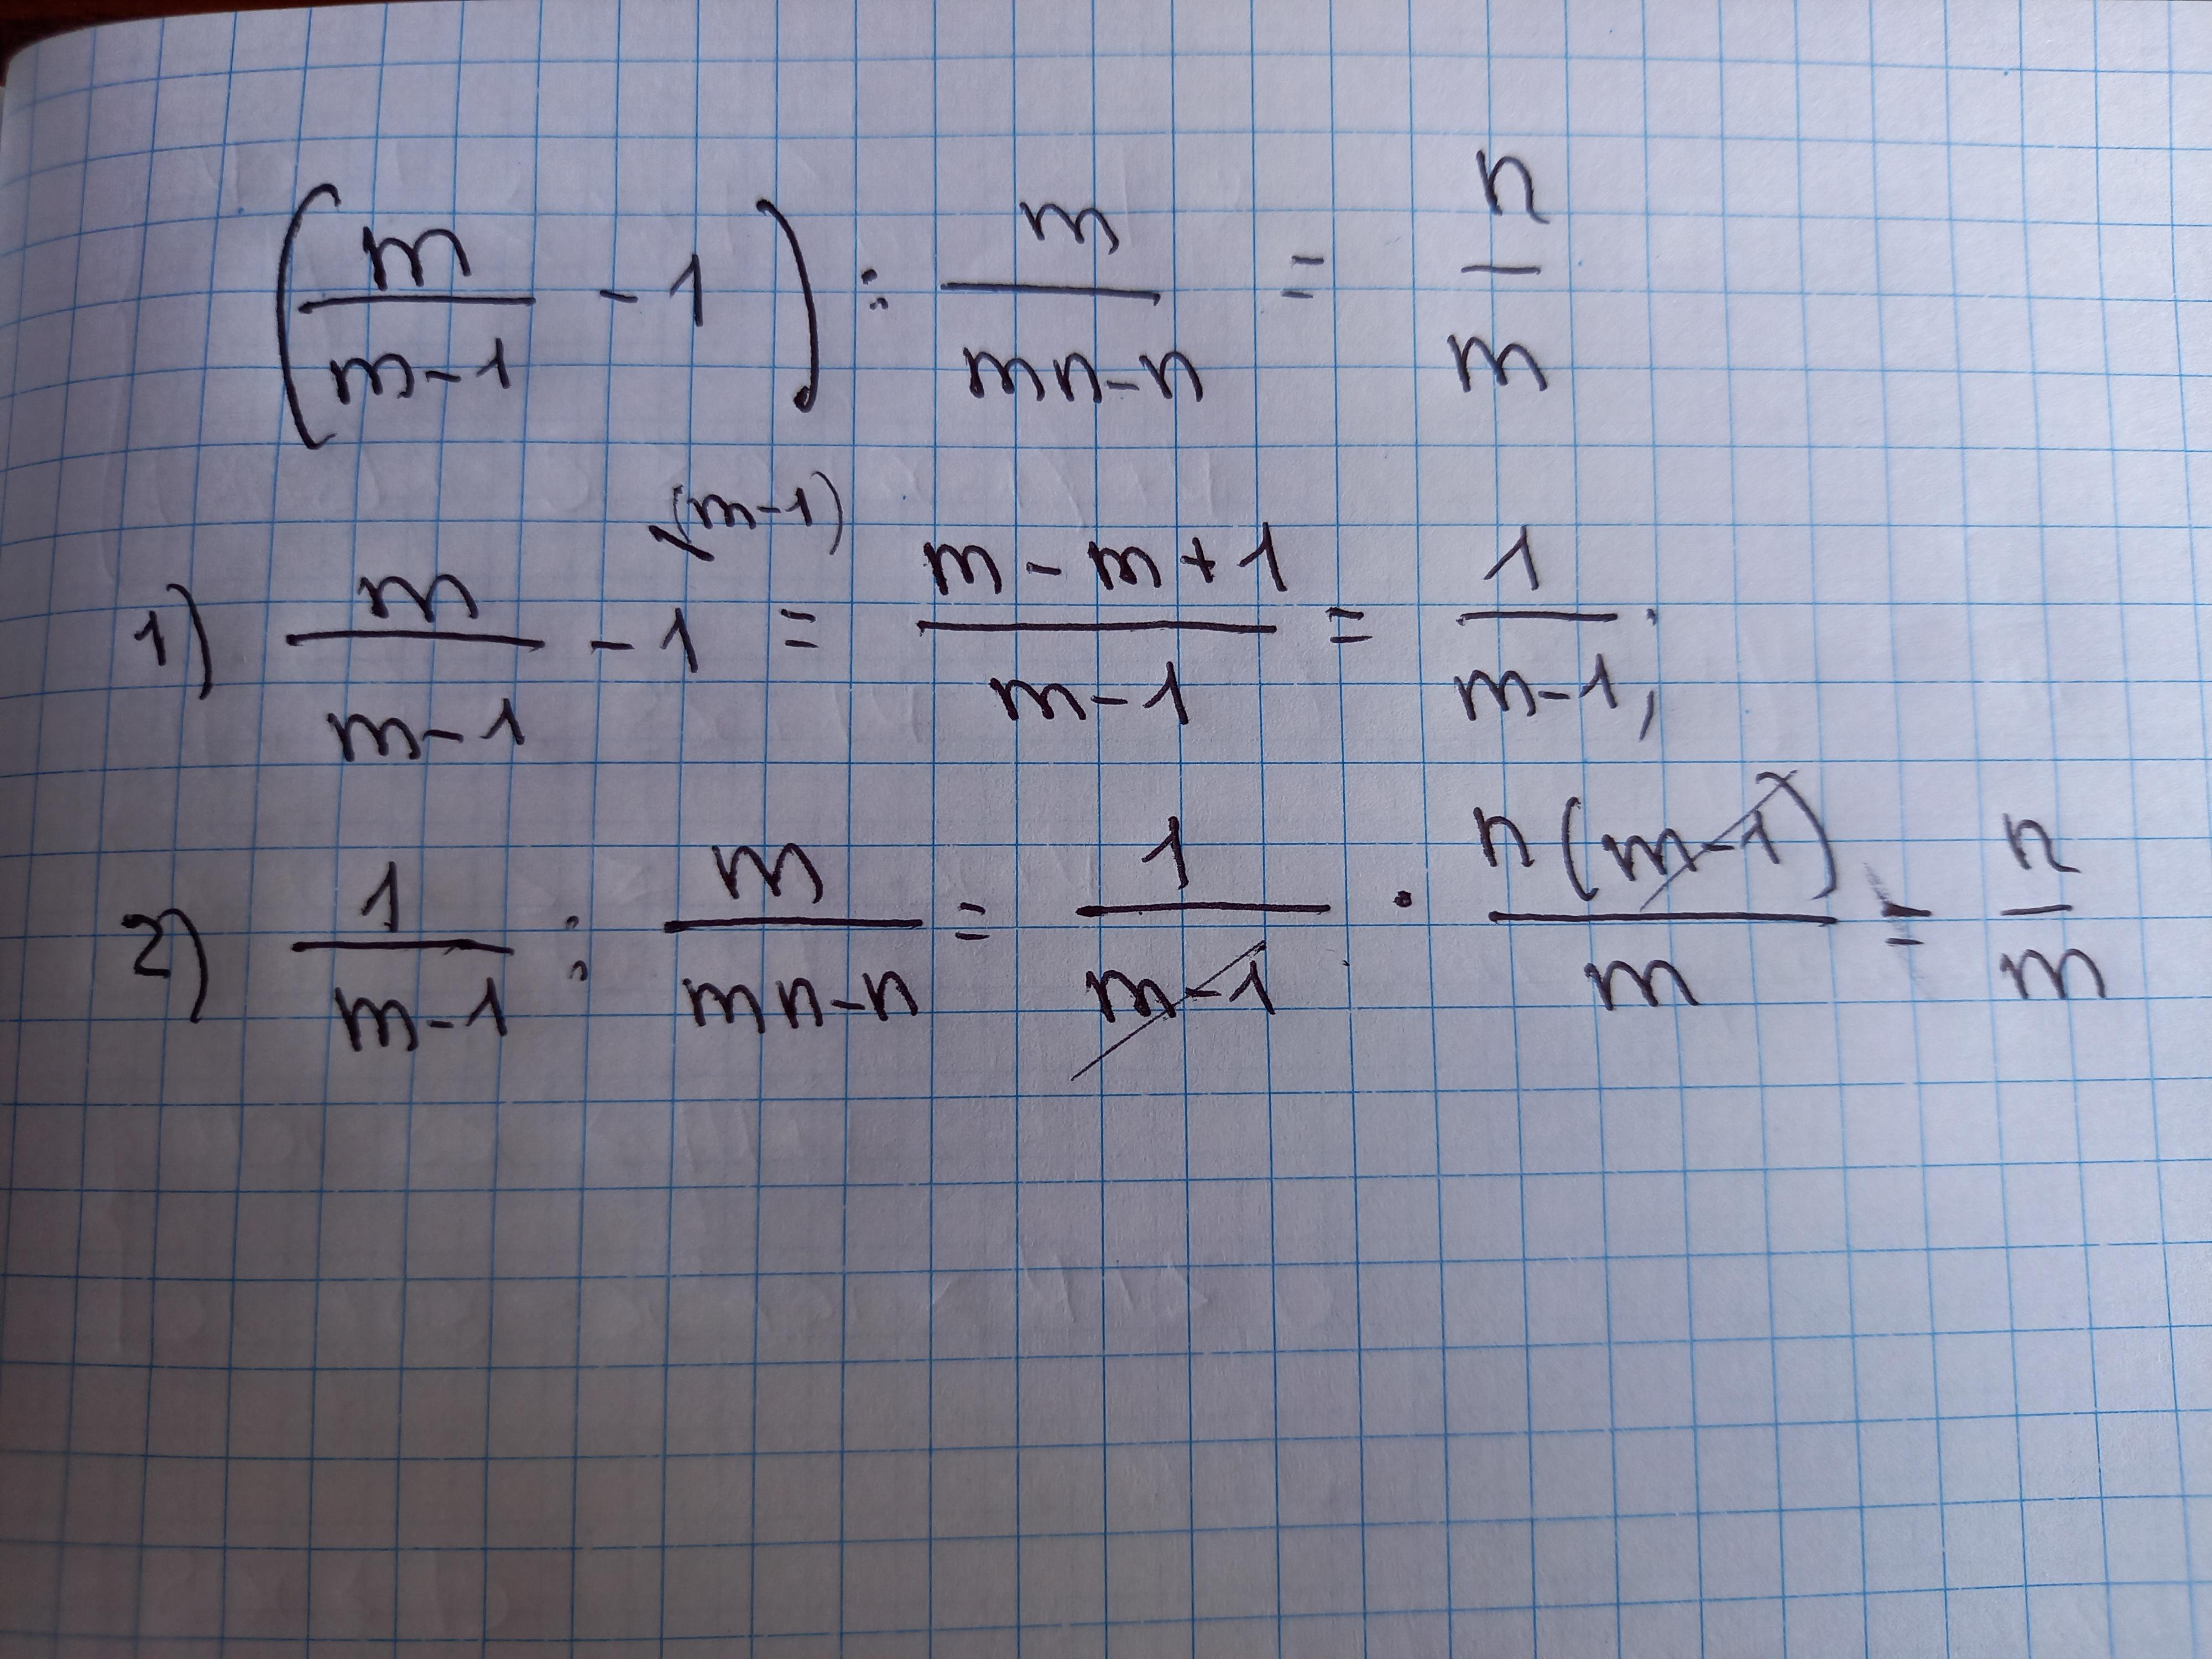 (m/(m-1) - 1) : m/(mn-n) = n/m
1) m/(m-1) - 1^(m-1) = (m-m+1)/(m-1) = 1/(m-1);
2) 1/(m-1) : m/(mn-n) = 1/(m-1) · n(m-1)/m = n/m